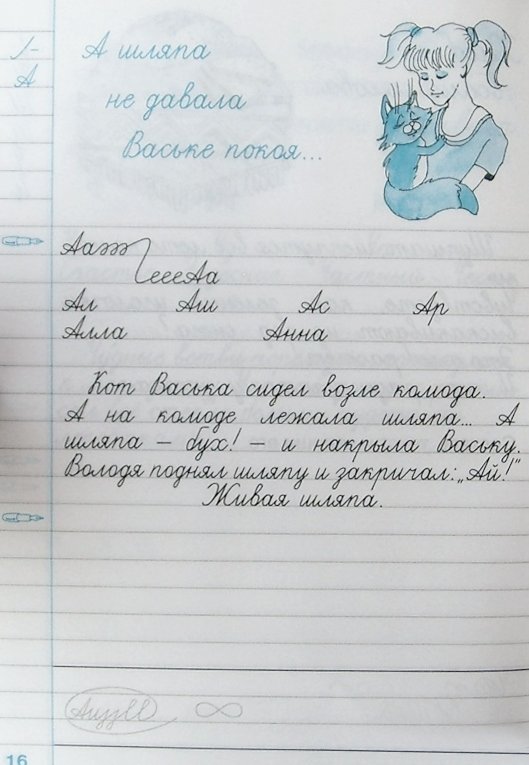 А шляпа
не давала
Ваське покоя...
А
Ал Аш Ас Ар
Алла Анна
Кот Васька сидел возле комода.
А на комоде лежала шляпа... А
шляпа – бух! – и накрыла Ваську.
Володя поднял шляпу и закричал: „Ай!"
Живая шляпа.
16